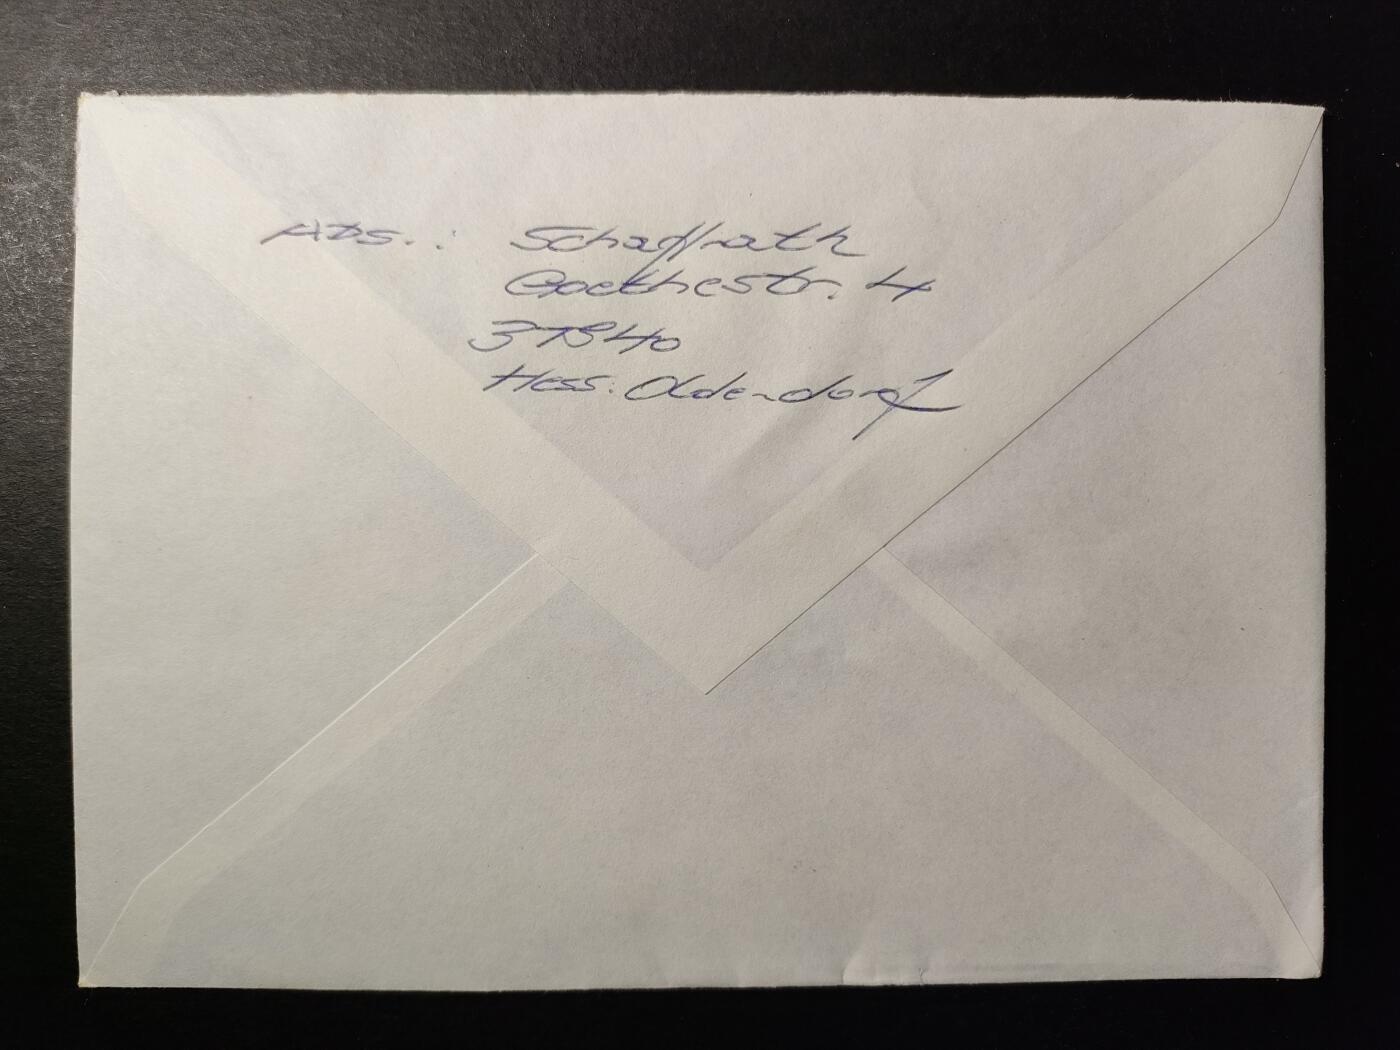 Abs.: Schaffrath
Goethestr. 4
31840
Hess. Oldendorf